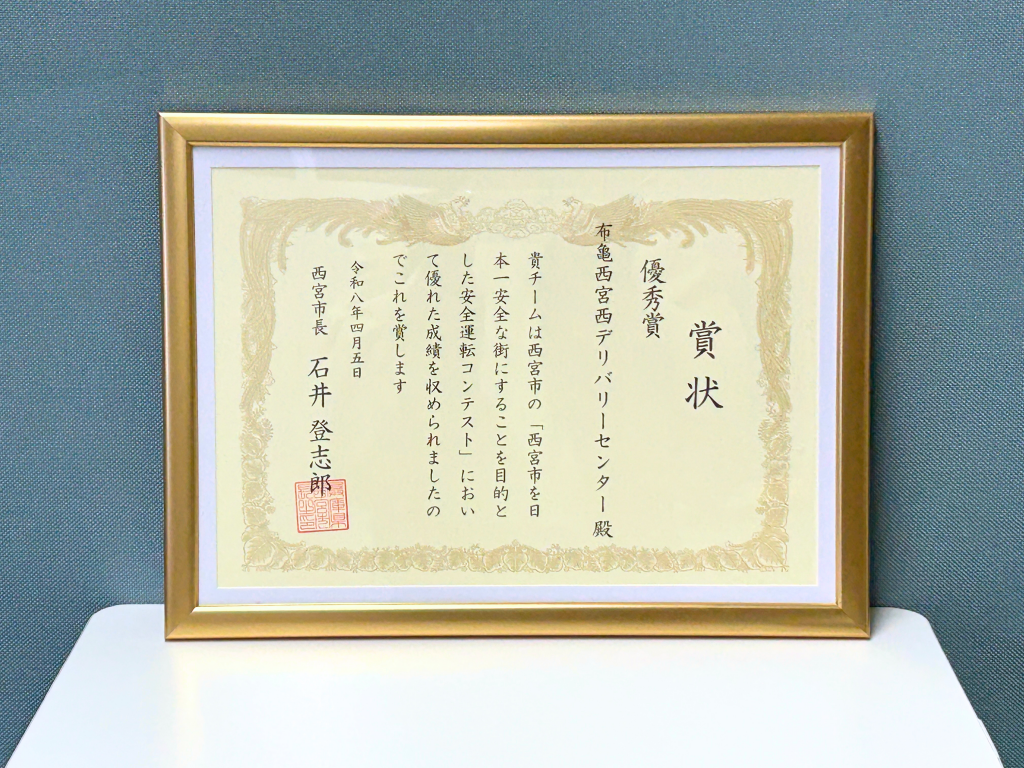 賞状
優秀賞
布亀西宮西デリバリーセンター殿
貴チームは西宮市の「西宮市を日
本一安全な街にすることを目的と
した安全運転コンテスト」におい
て優れた成績を収められましたの
でこれを賞します
令和八年四月五日
西宮市長 石井登志郎